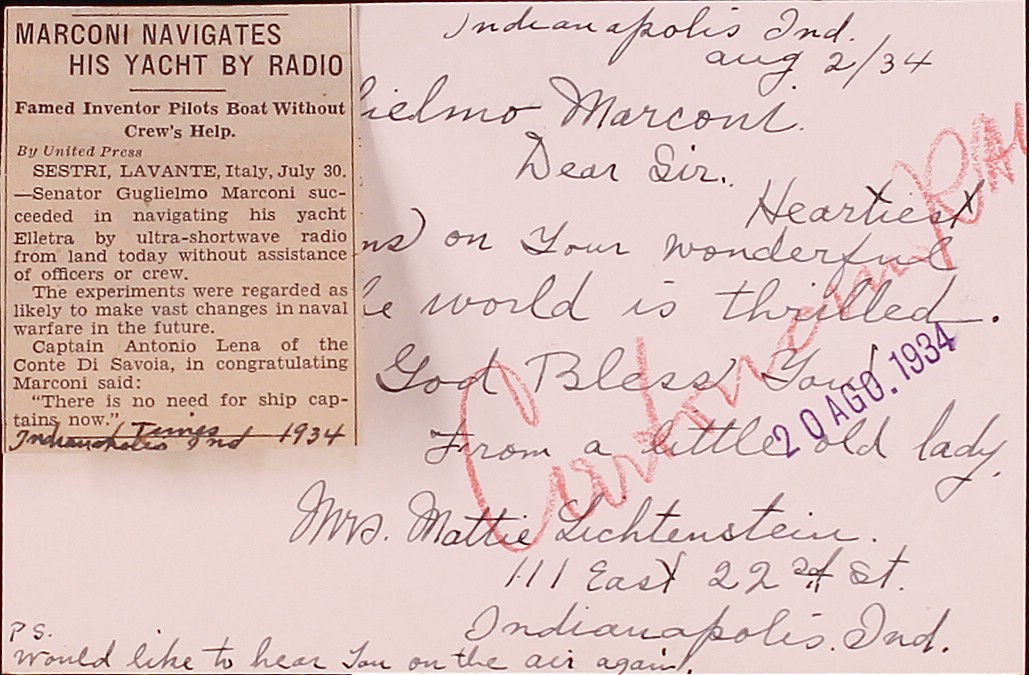 MARCONI NAVIGATES
HIS YACHT BY RADIO
Famed Inventor Pilots Boat Without
Crew's Help.
By United Press
SESTRI, LAVANTE, Italy, July 30.
—Senator Guglielmo Marconi suc-
ceeded in navigating his yacht
Elletra by ultra-shortwave radio
from land today without assistance
of officers or crew.
The experiments were regarded as
likely to make vast changes in naval
warfare in the future.
Captain Antonio Lena of the
Conte Di Savoia, in congratulating
Marconi said:
"There is no need for ship cap-
tains now."
Indianapolis Times Ind 1934
Indianapolis Ind.
Aug 2/34
ielmo Marconi.
Dear Sir.
Heartiest
ns) on Your wonderful
he world is thrilled.
God Bless You
20 AGO. 1934
From a little old lady.
Mrs. Mattie Lichtenstein.
111 East 22nd St.
Indianapolis. Ind.
P.S.
Would like to hear You on the air again.